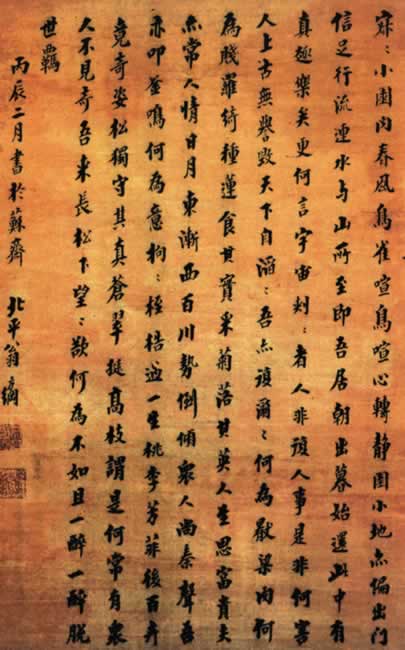 寂々小園内春風鳥雀喧鳥喧心轉静園小地亦偏出門
信足行流連水与山所至即吾居朝出暮始還此中有
真趣樂矣更何言宇宙刬々者人非復人事是非何害
人上古無譽毀天下自滔々吾亦復爾々何為厭梁肉何
為賤羅綺種蓮食其實采菊落其英人生思富貴夫
亦常人情日月東漸西百川勢倒傾衆人尚秦聲吾
亦叩釜鳴何為意拘々桎梏過一生桃李芳菲後百卉
競奇姿松獨守其真蒼翠挺高枝謂是何常有衆
人不見奇吾来長松下望々欲何為不如且一醉一醉脱
世羈
丙辰二月書於蘇齋 北平翁方綱